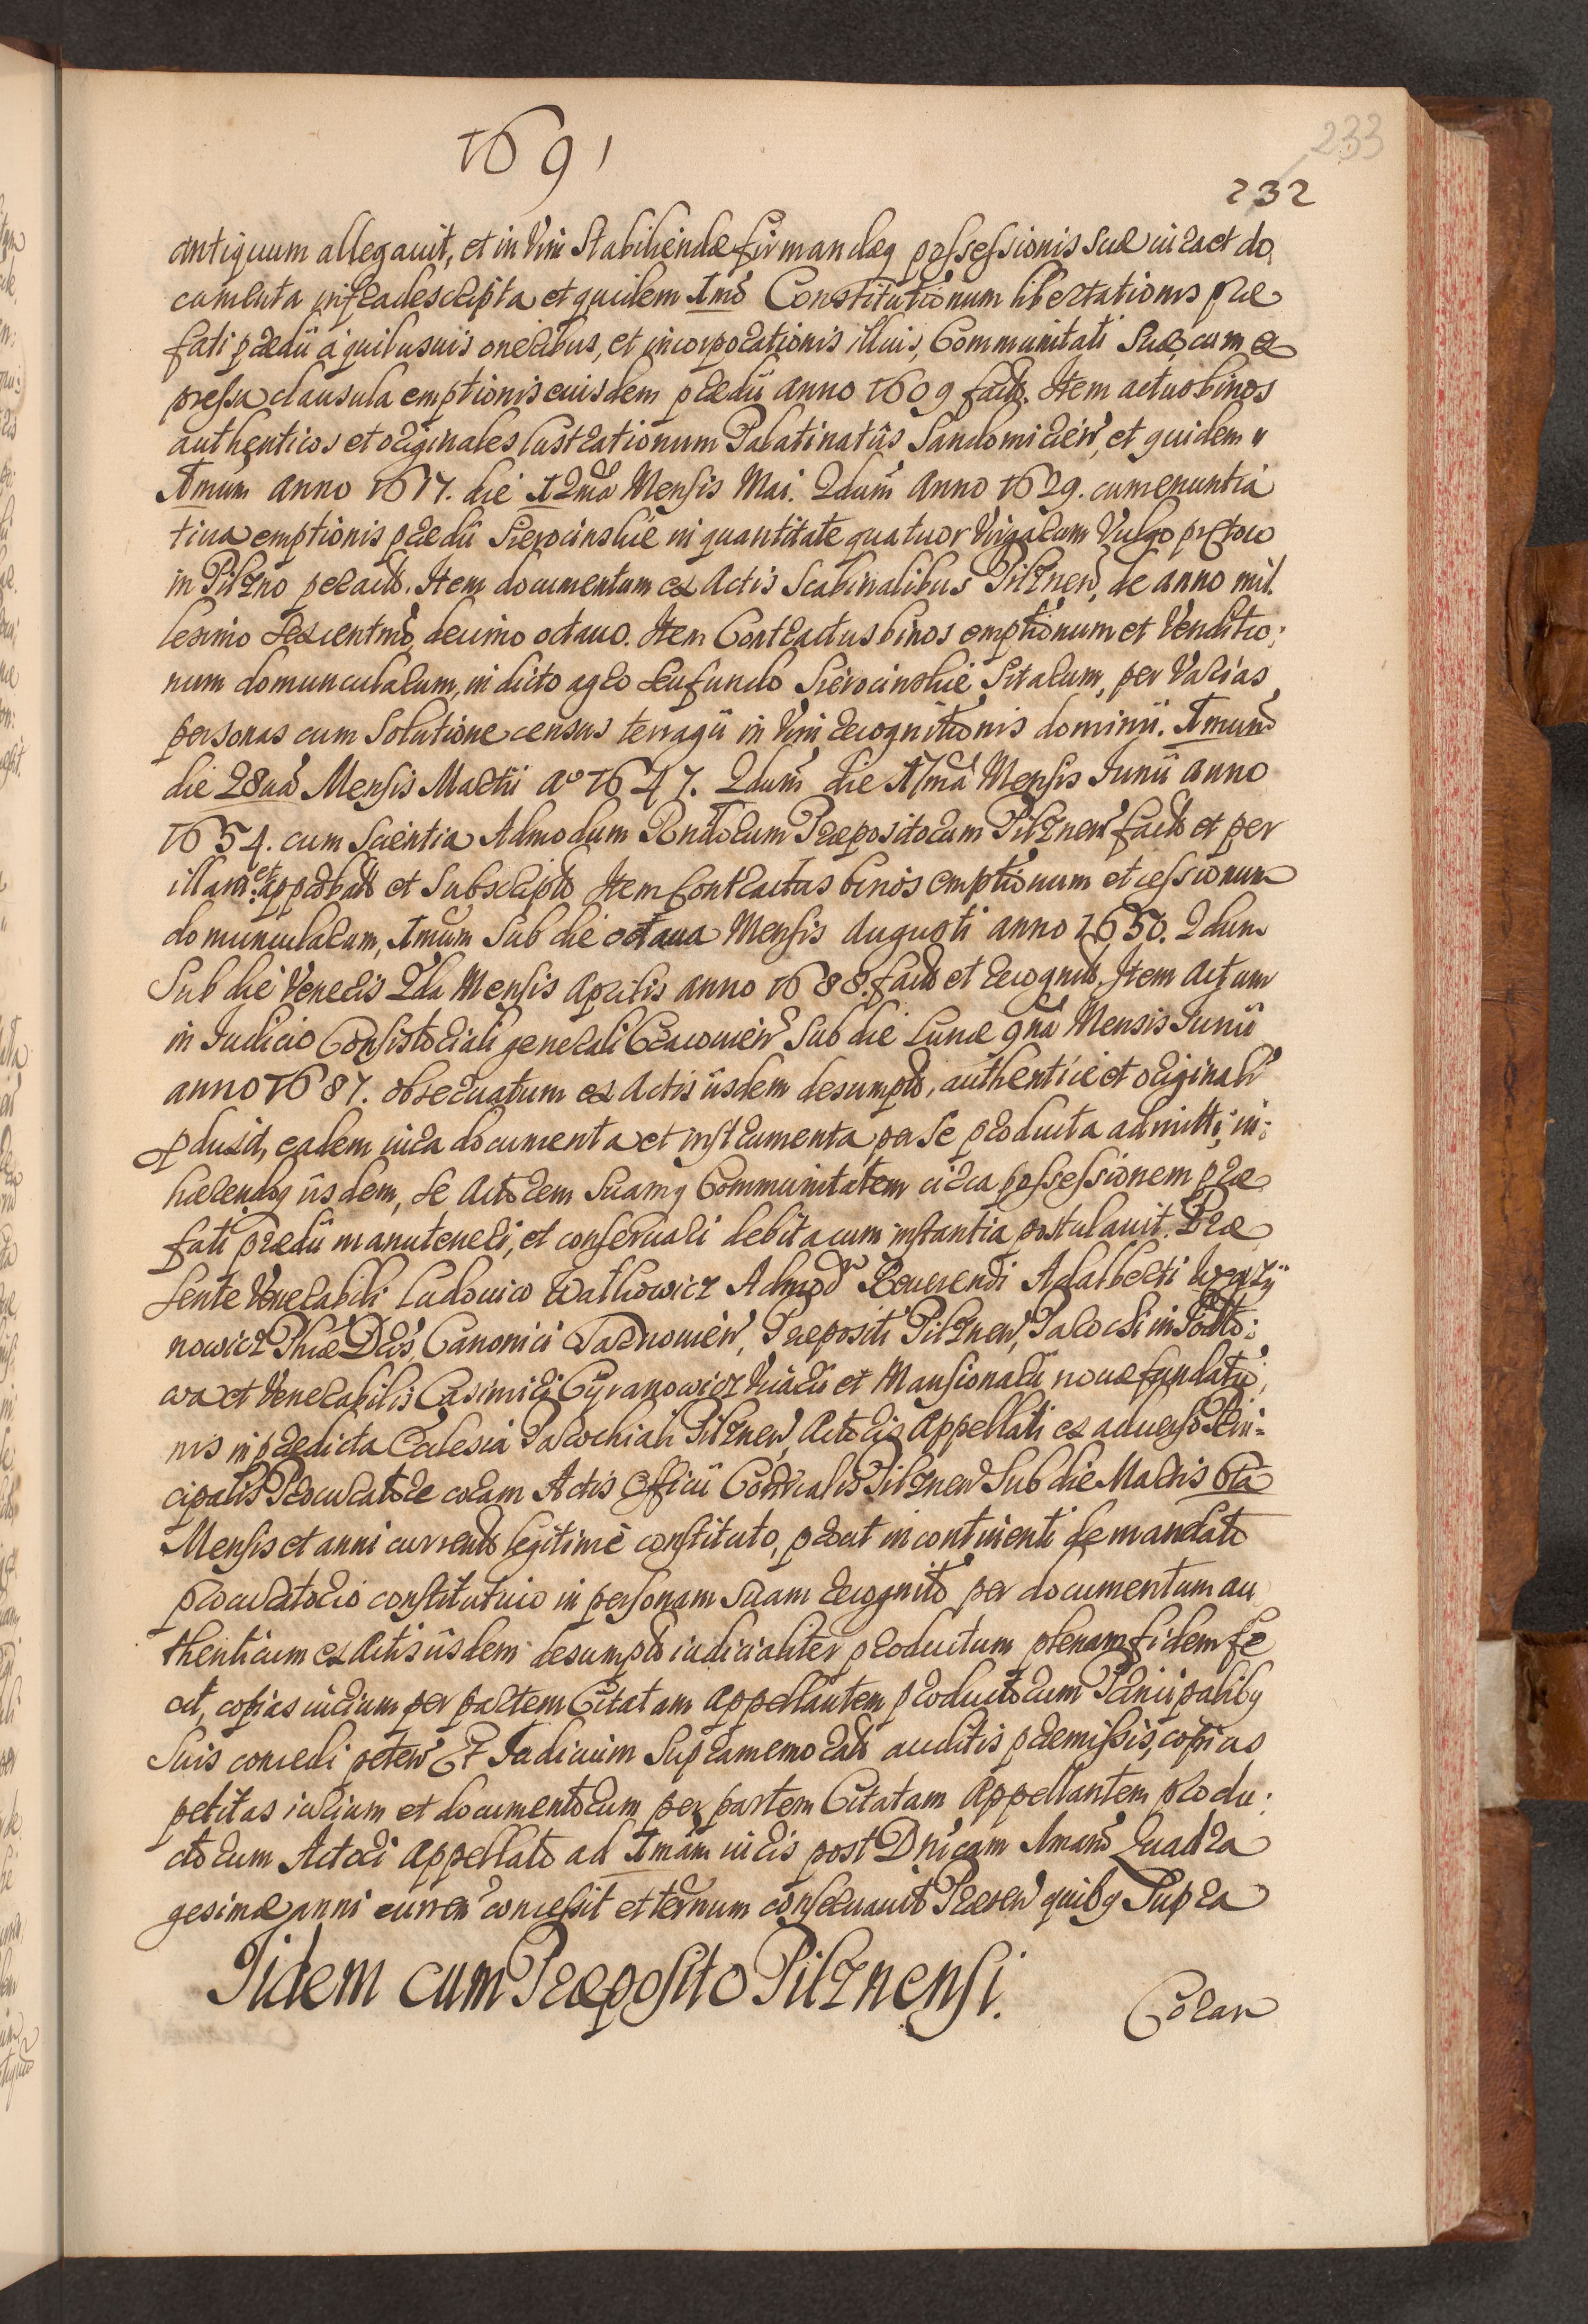 1691
233
232
antiquum allegauit, et in Vim Stabiliendæ firmandæq possessionis suæ iura et do
cumenta infradescripta et quidem Imo Constitutionum libertationis præ
fati prædii a quibusuis oneribus, et incorporationis illius, Communitati Suæ, cum ex
pressa clausula emptionis eiusdem prædii anno 1609 fact. Item actus binos
authenticos et originales lustrationum Palatinatus Sandomirien, et quidem
Imum anno 1617. die 12ma Mensis Mai. 2dum anno 1629. cum enuntia
tiua emptionis prædii Sierocinskie in quantitate quatuor Virgarum Vulgo prętow
in Pilzno peract. Item documentum ex Actis Scabinalibus Pilznen, de anno mil
lesimo sexcentmo decimo octauo. Item Contractus binos emptionum et Venditio:
num domuncularum, in dicto agro seu fundo Sierocinskie Sitarum, per Varias
personas cum Solutione census terragii in Vim recognitionis dominii. Imum
die 28ua Mensis Martii ao 1647. 2dum die 17ma Mensis Iunii anno
1654. cum Scientia Admodum Rndorum Præpositorum Pilznen fact et per
illam et approbat et Subscript Item Contractus binos emptionum et cessionum
domuncularum, Imum Sub die octaua Mensis Augusti anno 1650. 2dum
Sub die Veneris 2da Mensis Aprilis anno 1688. fact et recognit. Item Actum
in Iudicio Consistoriali generali Cracouien Sub die Lunæ 9na Mensis Iunii
anno 1687. obseruatum ex Actis iisdem desumpt, authentice et originalr
pduxit, eadem iura documenta et instrumenta per se producta admitti, in:
hærendoq iisdem, se Actorem Suamq Communitatem circa possessionem præ
fati prædii manuteneri, et conseruari debita cum instantia postulauit. Præ
sente Venerabili Ludouico Watkowicz Admodr Reuerendi Adalberti Wawrzy
nowicz Phiæ Dris, Canonici Tarnouien, Præpositi Pilznen, Parochi in
wa et Venerabilis Casimiri Cyranowicz Vicarii et Mansionarii nouæ fundatio
nis in prædicta Ecclesia Parochiali Pilznen, Actoris Appellati ex aduerso Prin:
cipalis Procuratore coram Actis Officii Consularis Pilznen Sub die Martis 6ta
Mensis et anni current legitimè constituto, prout in continenti de mandato
procuratorio constitutiuo in personam suam recognito per documentum au
thenticum ex Actis iisdem desumpt iudicialiter productum plenam fidem fe
cit, copias iurium per partem Citatam Appellantem productorum Principalibq
Suis concedi peten Et Iudicium Supramemorat auditis præmissis, copias
petitas iurium et documentorum per partem Citatam Appellantem produ:
ctorum Actori Appellato ad Imam iuris post Dnicam Imam Quadra
gesimæ anni curren concessit et ternum conseruauit Præsen quibq Supra
Iidem cum Præposito Pilznensi.
Coram